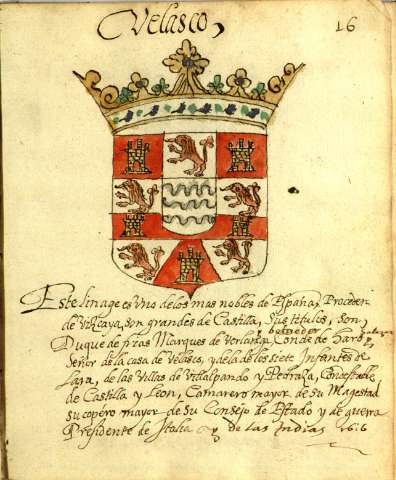 Velasco,
16
Este linage es uno de los mas nobles de España, Proceden
de Vizcaya, son grandes de Castilla, sus titulos, son,
Duque de frias Marques de Verlanga Conde de haro,
Señor de la casa de Velasco, y de la de los siete Infantes de
Lara, de las Villas de Villalpando y Pedraza, Condestable
de Castilla y Leon, Camarero mayor de su Magestad
su copero mayor de su Consejo de Estado y de guerra
Presidente de Italia y de las Indias